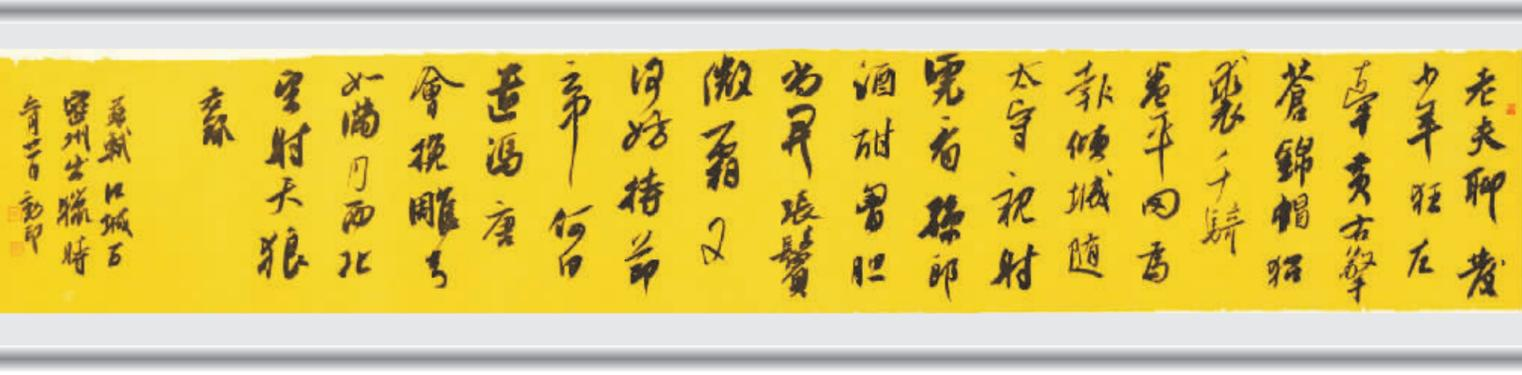 老夫聊發
少年狂左
牽黃右擎
蒼錦帽貂
裘千騎
卷平岡爲
報傾城随
太守親射
虎看孫郎
酒酣胸胆
尚開張鬢
微霜又
何妨持節
云中何日
遣馮唐
會挽雕弓
如滿月西北
望射天狼
蘇軾江城子
密州出獵時